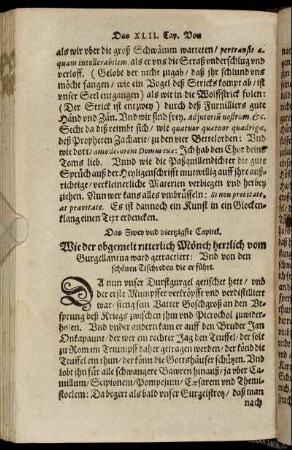 Das XLII. Cap. Von
als wir vber die groß Schwämm watteten / pertransit a-
quam intollerabilem. als er vns die Straß vnderschlug vnd
verloff. (Gelobt der nicht zugab / daß jhr schlund vns
möcht fangen / wie ein Vogel deß Stricks kompt ab / ist
vnser Seel entgangen) als wir in die Wolffstrick fielen:
(Der Strick ist entzwey) durch deß Furnilliers gute
Händ vnd Zän. Vnd wir sind frey. Adjutoriũ nostrum, &c.
Secht da diß reimbt sich / wie quatuor quatuor quadrigæ,
deß Propheten Zacharie / zu den vier Bettelorden: Vnd
wie dort /
Toms lieb. Vnnd wie die Paßquillendichter die gute
Sprüch auß der Heyligenschrifft mutwillig auff jhre auß-
erdachte / verkleinerliche Materien verbiegen vnd herbey
ziehen. Nun wer kans alles vmbrüffeln: Si non provitate,
at pravitate. Es ist dannoch ein Kunst in ein Glocken-
klang einen Text erdencken.
Das Zwey vnd viertzigste Capitel.
Wie der obgemelt ritterlich Mönch herrlich vom
Gurgellantua ward getractiert: Vnd von den
schönen Tischreden die er führt.
DA nun vnser Durstgurgel getischet hett / vnd
der erste Mumpffer verkröpfft vnd verdistilliert
war / fiengs ein Vatter Goschagoß an den Be-
sprung deß Kriegs zwischen jhm vnd Picrochol zuwider-
holen. Vnd vnder andern kam er auff den Bruder Jan
Onkapaunt / der wer ein rechter Jag den Teuffel / der solt
zu Rom im Triumpff daher getragen werden / der könt die
Teuffel ein thun / der könn die Gottshäuser schützen. Vnd
lobt jhn für alle schwangere Bawren hinauß / ja vber Ca-
millum / Scipionem / Pompejum / Cæsarem vnd Themi-
stoclem: Da begert als bald vnser Gurgelstroz / daß man
nach